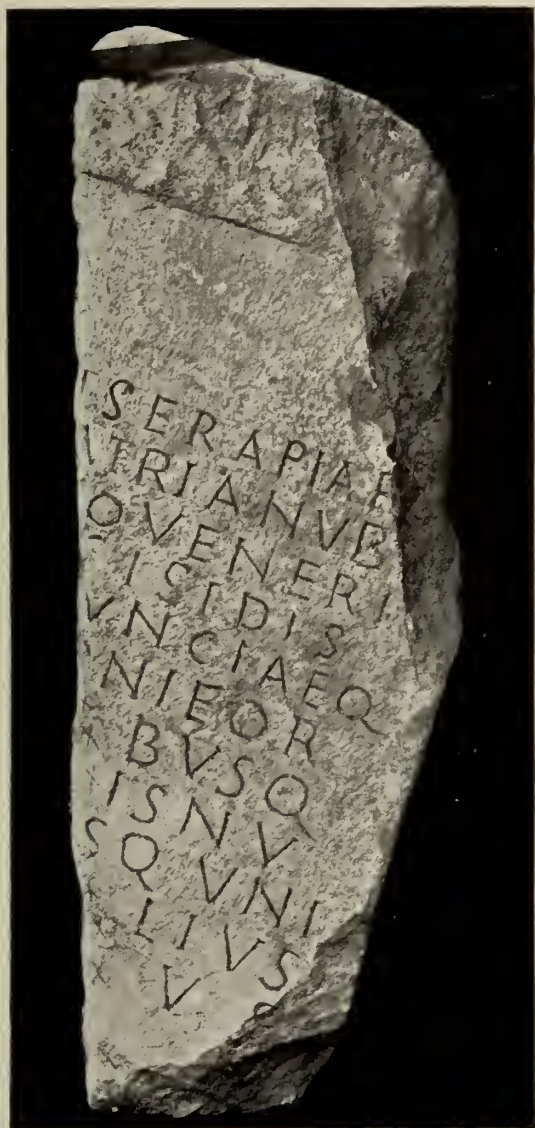 SERAPIAE
TRIANVB
QVENERI
ISIDIS
VNCIAEQ
NIEOR
BVSQ
ISNV
SQVNI
LIVS
V